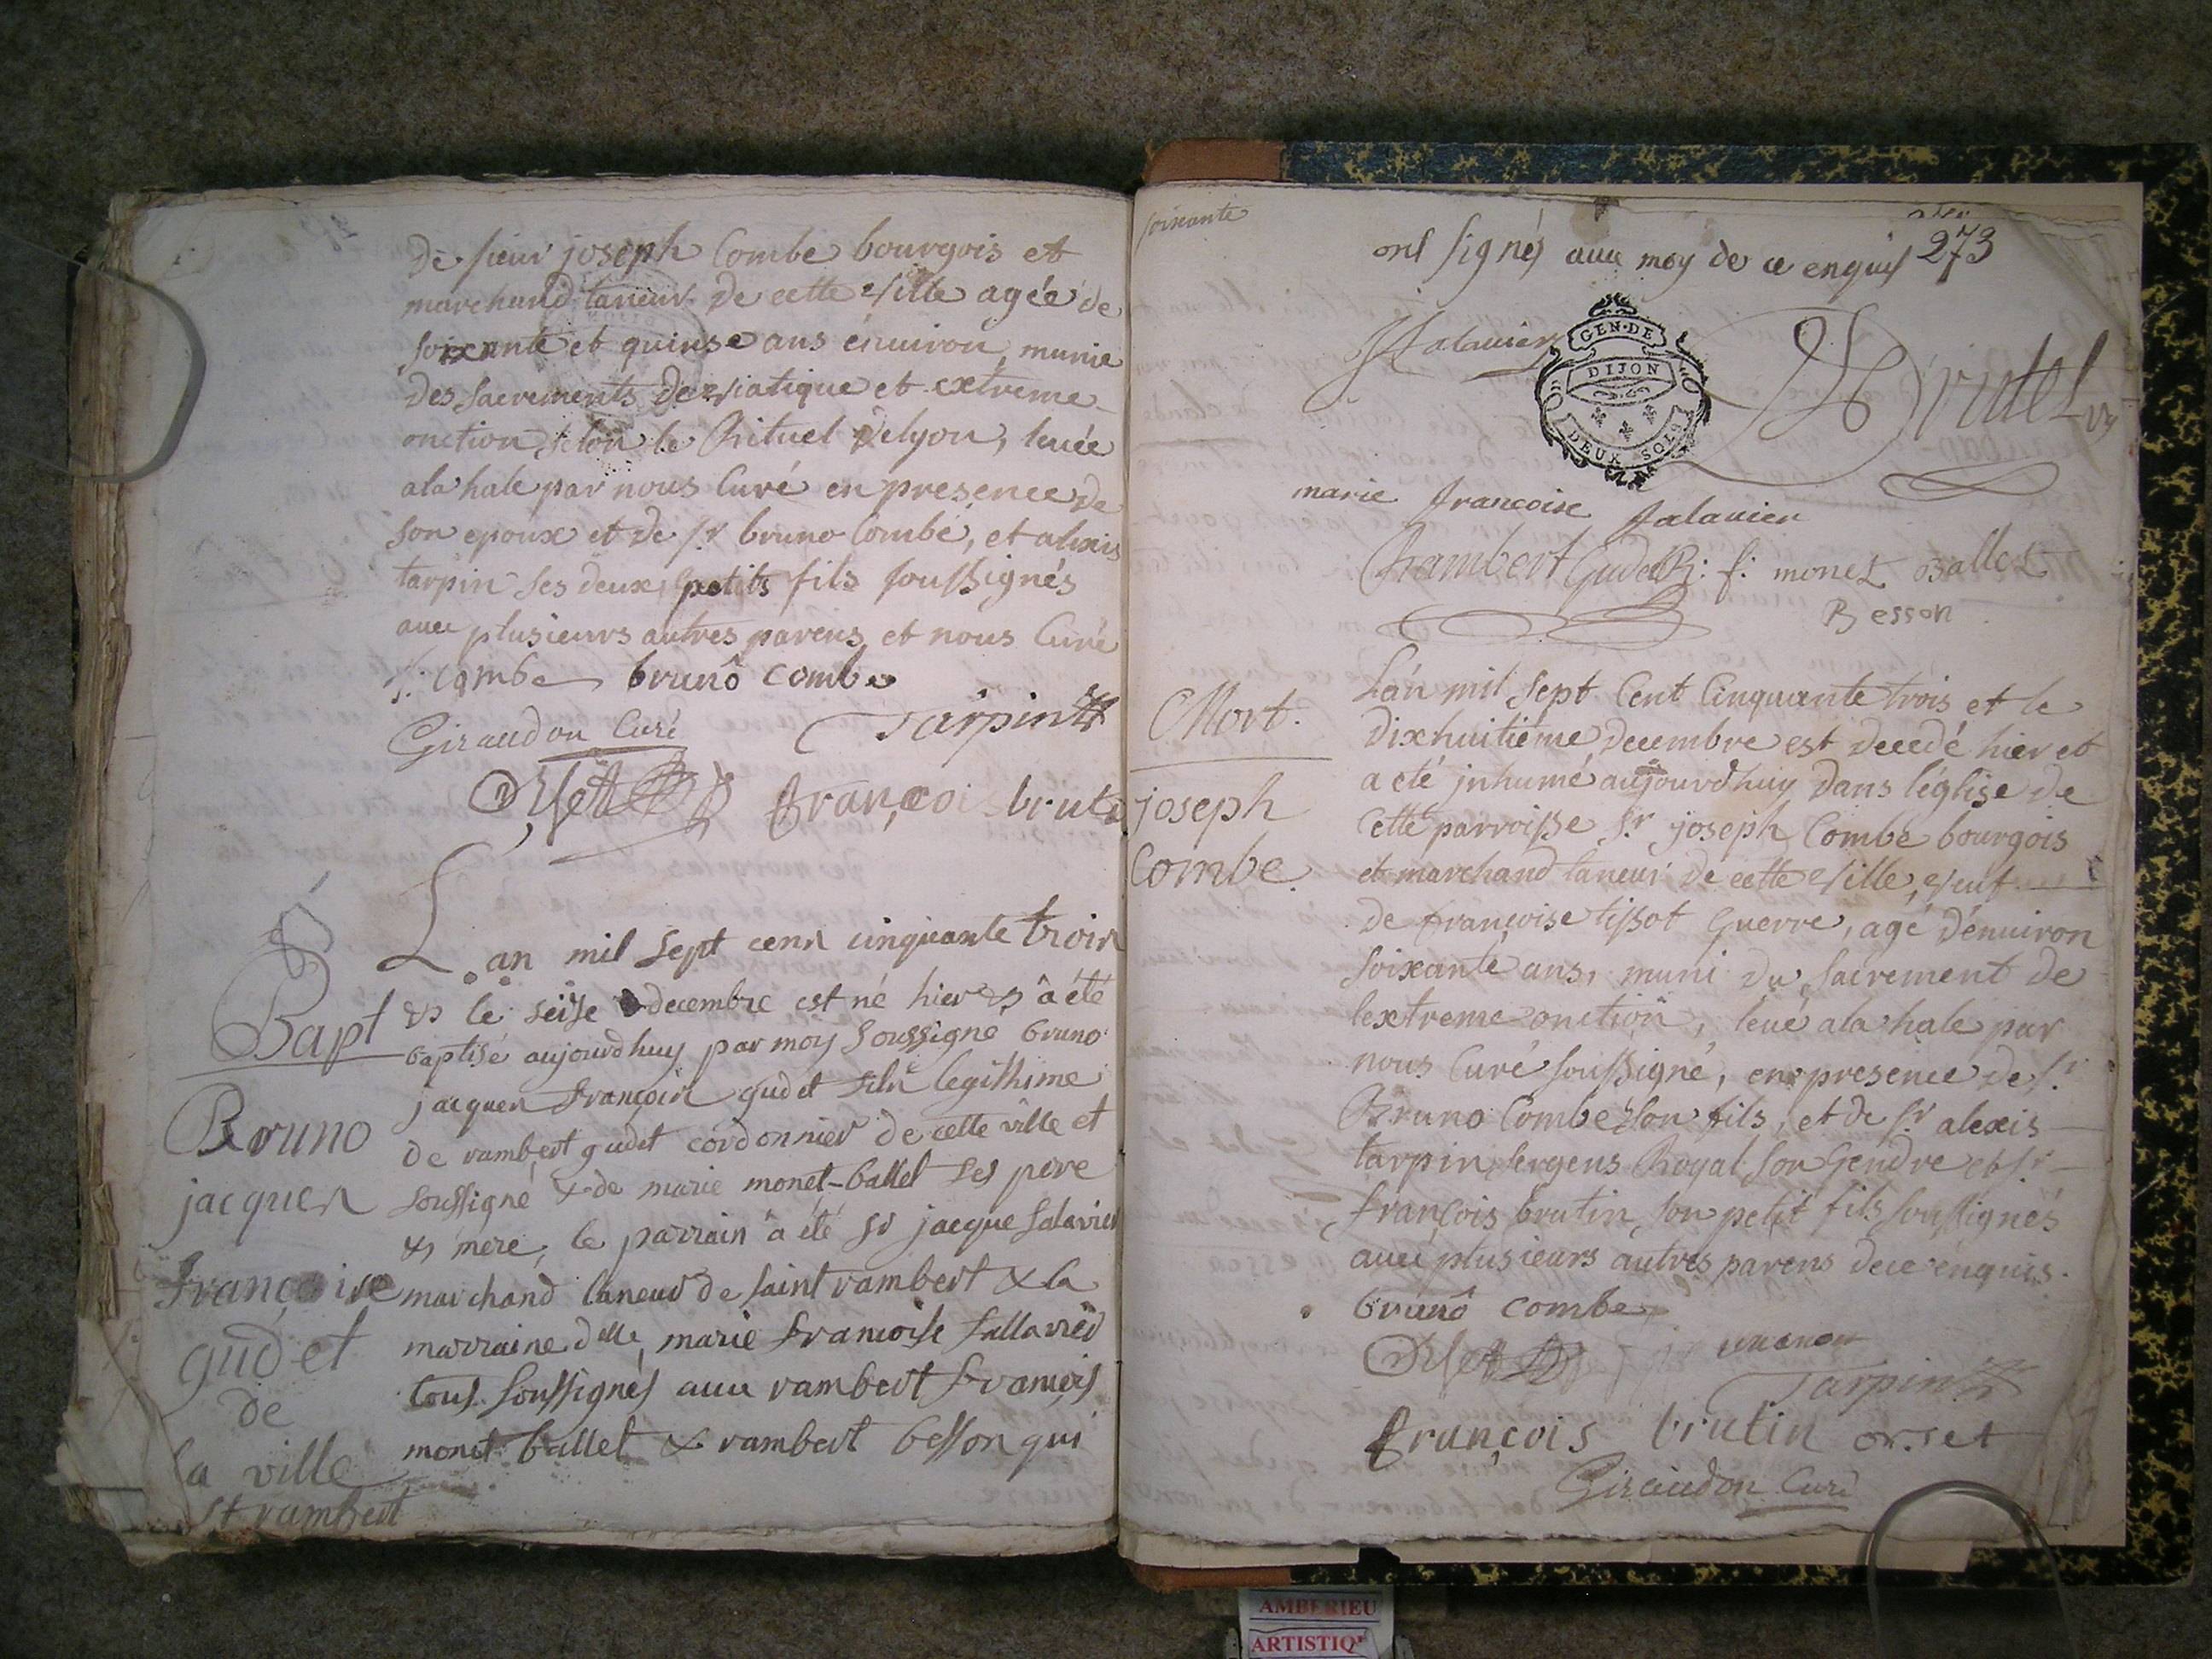 de sieur joseph Combe bourgois et
marchand taneur de cette ville agée de
soixante et quinse ans environ, munie
des sacrements de viatique et extreme
onction selon le Rituel de lyon, levée
a la hale par nous Curé en presence de
son epoux et de sr bruno Combe, et alexis
tarpin ses deux petits fils soussignés
avec plusieurs autres parens et nous Curé
j: combe bruno combe
Giraudon Curé Tarpin
Orset françois bruti
L'an mil sept cent cinquante trois
& le seise decembre est né hier & a été
baptisé aujourdhuy par moy soussigné bruno
jacques françois gudet fils legithime
de rambert gudet cordonnier de cette ville et
soussigné & de marie monet-ballet ses pere
& mere, le parrain a été sr jacque salavier
marchand taneur de saint rambert & la
marraine delle, marie francoise sallavier
tous soussignés avec rambert francois
monet ballet & rambert besson qui
Bapt
Bruno
jacques
françoise
gudet
de
la ville
st rambert
soixante
273
ont signés avec moy de ce enquis
J Jalavier
GEN·DE
DIJON
DEUX SOLS
marie françoise Jalavier
Rambert Gudet R: f: monet Ballet
Besson
Mort.
joseph
Combe.
L'an mil sept Cent Cinquante trois et le
dixhuitiéme decembre est decedé hier et
a eté jnhumé aujourdhuy dans l'église de
Cette parroisse Sr joseph Combe bourgois
et marchand taneur de cette ville, veuf
de françoise tissot Guerre, agé d'environ
soixante ans, muni du sacrement de
lextreme onction, levé a la hale par
nous Curé soussigné, en presence de sr
Bruno Combe son fils, et de sr alexis
tarpin sergens Royal son Gendre et sr
françois brutin, son petit fils soussignés
avec plusieurs autres parens de ce enquis.
bruno combe
Orset
Tarpin
françois brutin orset
Giraudon Curé
AMBERIEU
ARTISTIQ